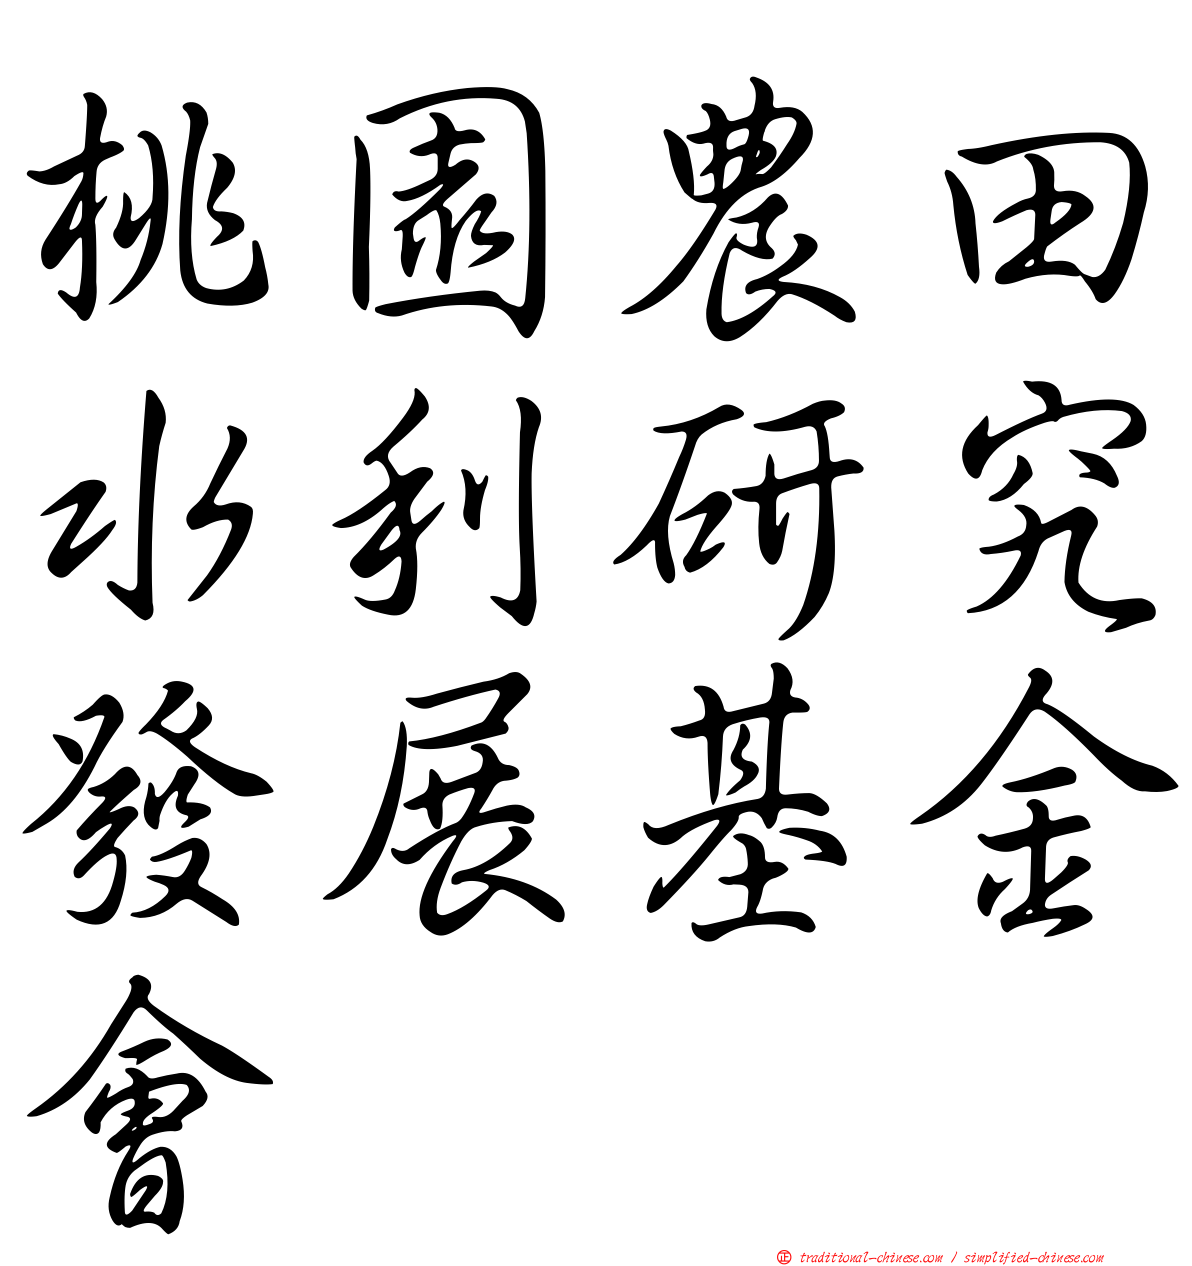 桃園農田
水利研究
發展基金
會
正 traditional-chinese.com / simplified-chinese.com